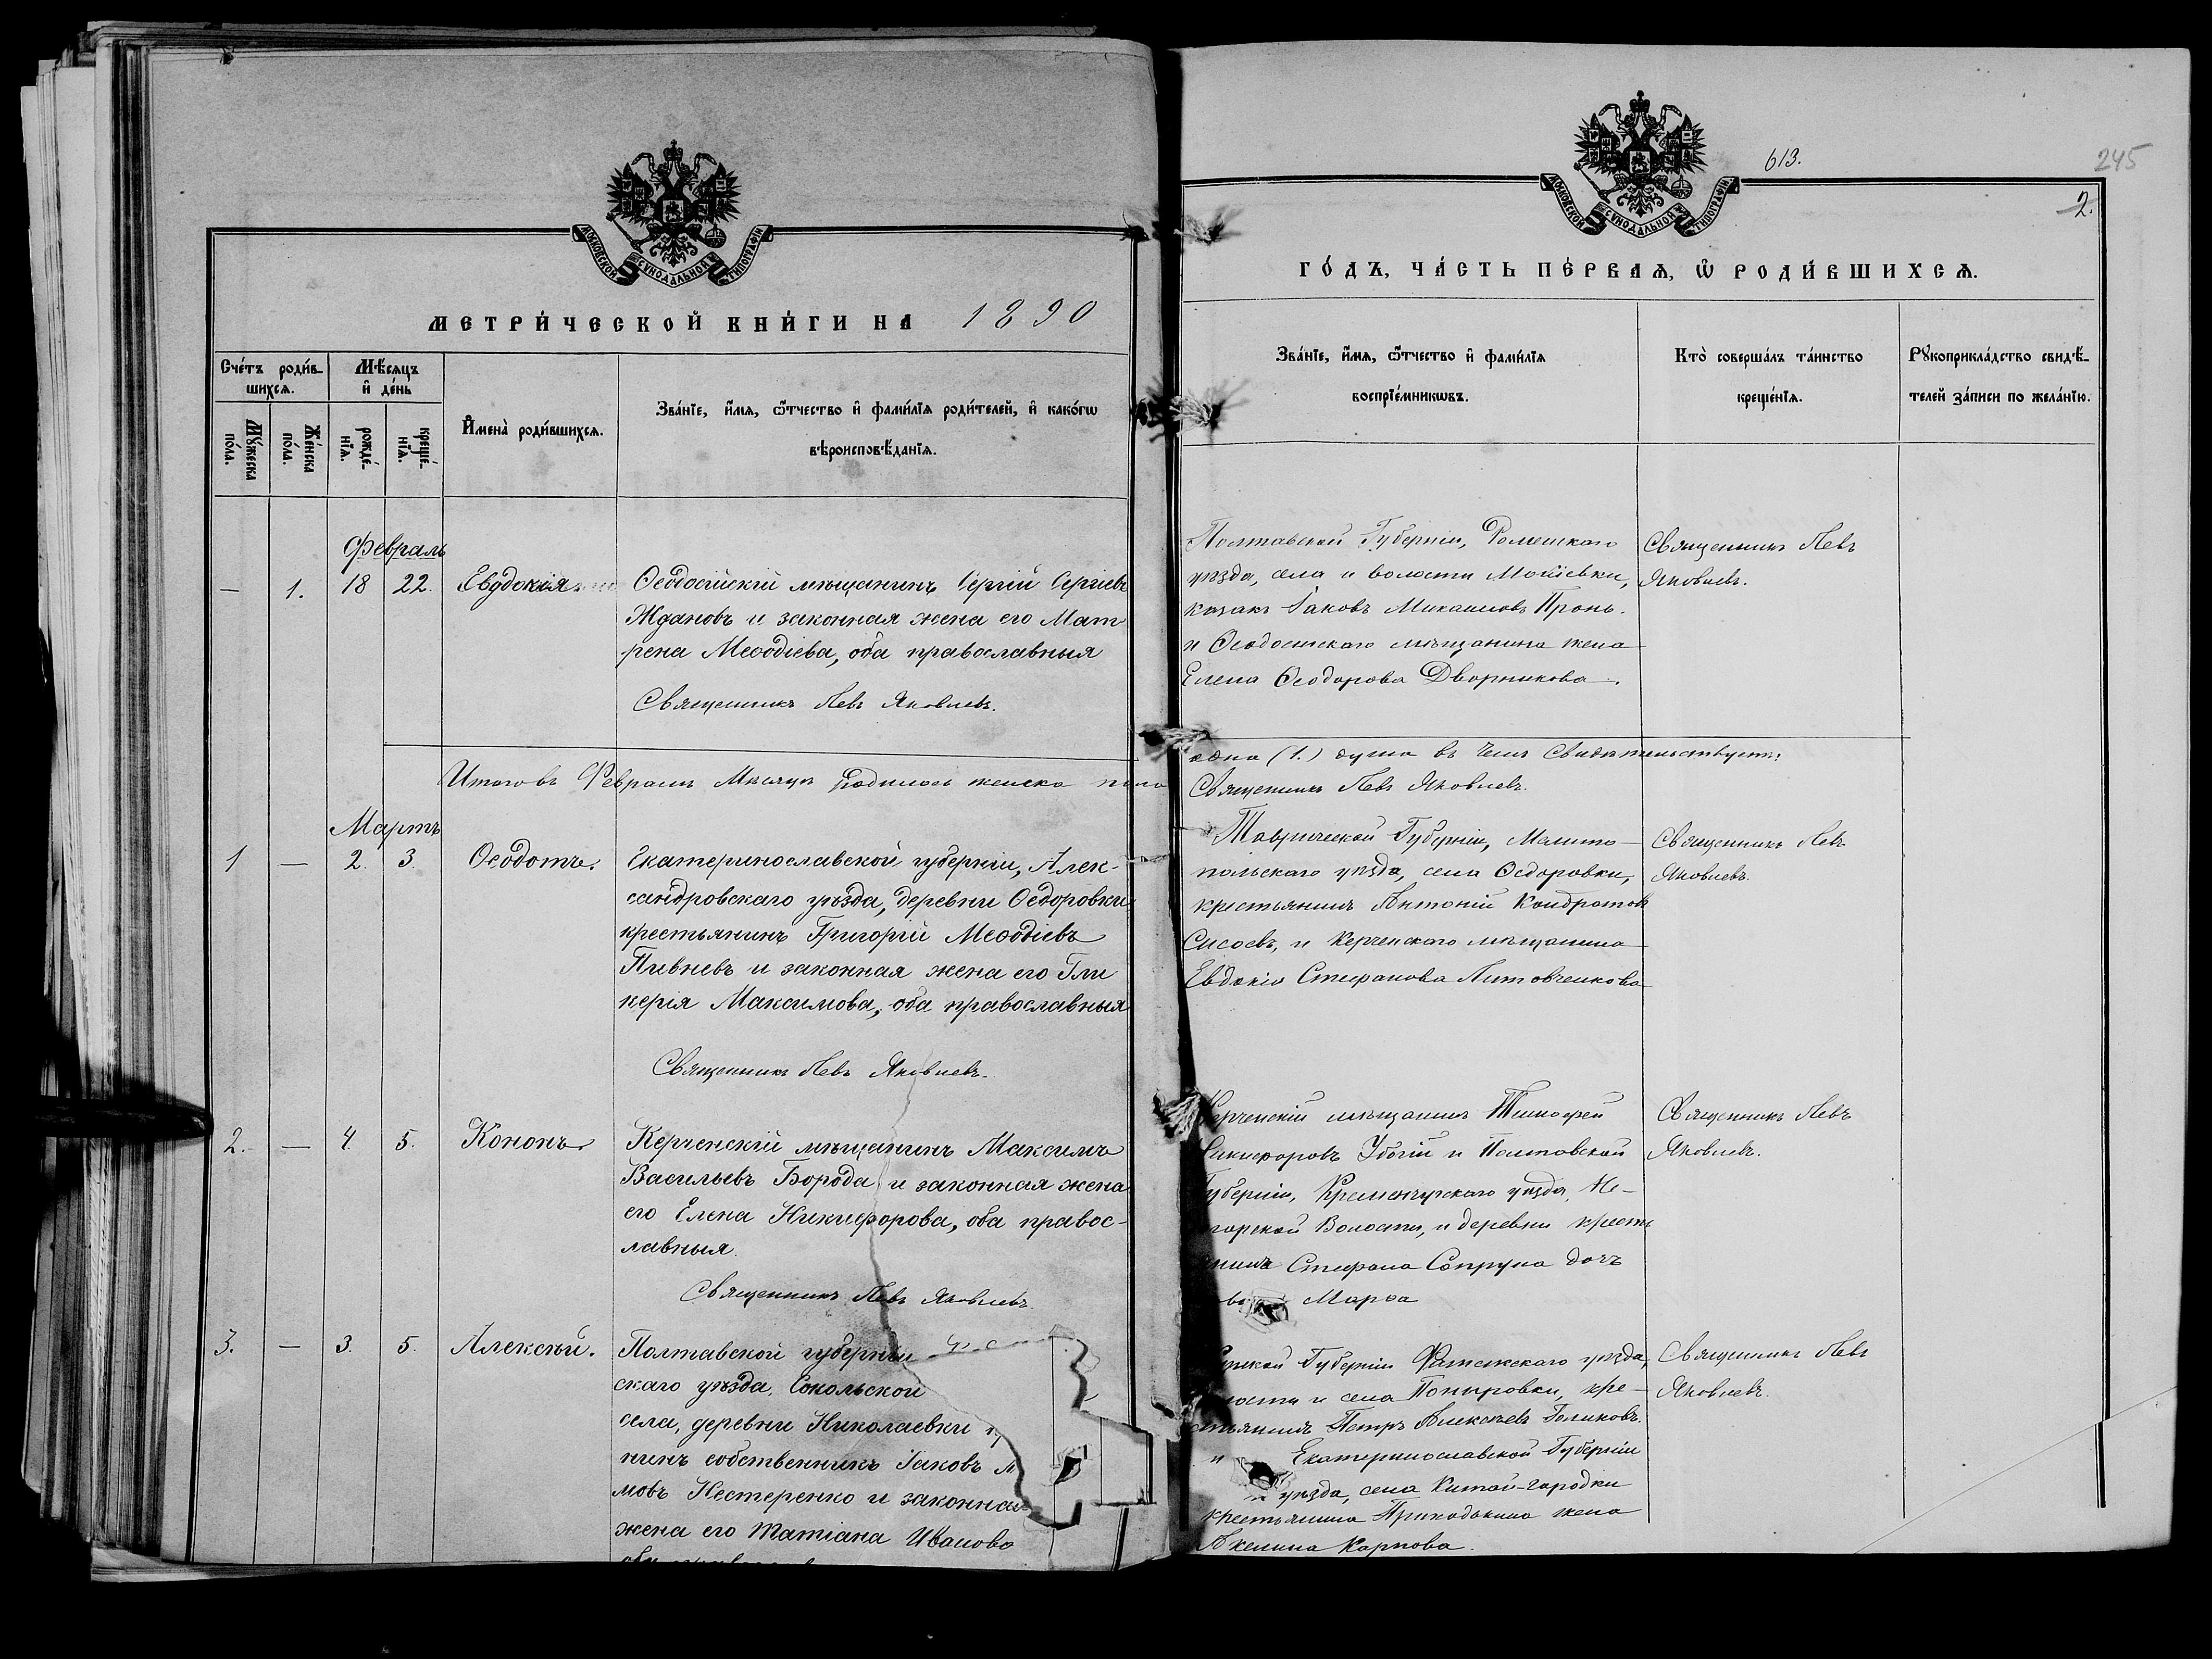 МОСКОВСКОЙ СѴНОДАЛЬНОЙ ТИПОГРАФІИ
МЕТРИ́ЧЕСКОЙ КНИ́ГИ НА 1890
Сче́тъ роди́в-
шихсѧ.
Мѣ́сѧцъ
и҆ де́нь
Мꙋ́жеска
по́ла.
Же́нска
по́ла.
рожде́-
нїѧ.
креще́-
нїѧ.
И҆мена̀ роди́вшихсѧ.
Зва́нїе, и҆́мѧ, ѻ҆́тчество и҆ фами́лїѧ роди́телей, и҆ како́гѡ
вѣроисповѣ́данїѧ.
Февраль
— 1. 18 22. Евдокія
Ѳеодосійскій мѣщанинъ Сергій Сергіевъ
Ждановъ и законная жена его Мат
рена Меѳодіева, оба православныя
Священникъ Левъ Яковлевъ.
Итого въ Февралѣ Мѣсяцѣ родилось женска пола
Мартъ
1 — 2. 3. Ѳеодотъ.
Екатеринославской губерніи, Алек-
сандровскаго уѣзда, деревни Ѳедоровки
крестьянинъ Григорій Меѳодіевъ
Пивневъ и законная жена его Гли
керія Максимова, оба православныя
Священникъ Левъ Яковлевъ.
2. — 4. 5. Кононъ
Керченскій мѣщанинъ Максимъ
Васильевъ Борода и законная жена
его Елена Никифорова, оба правос-
лавныя.
Священникъ Левъ Яковлевъ.
3. — 3. 5. Алексѣй.
Полтавской губерніи
скаго уѣзда, Сокольской
села, деревни Николаевки
нинъ собственникъ Іаковъ
мовъ Нестеренко и законная
жена его Татіана Иванова
613.
245
2.
МОСКОВСКОЙ СѴНОДАЛЬНОЙ ТИПОГРАФІИ
ГО́ДЪ, ЧА́СТЬ ПЕ́РВАѦ, Ѡ҆ РОДИ́ВШИХСѦ.
Зва́нїе, и҆́мѧ, ѻ҆́тчество и҆ фами́лїѧ
воспрїе́мникѡвъ.
Кто̀ соверша́лъ та́инство
креще́нїѧ.
Рꙋкоприкла́дство свидѣ́-
телей за́писи по жела́нїю.
Полтавской Губерніи, Роменскаго
уѣзда, села и волости Моисіевки,
казакъ Іаковъ Михаиловъ Пронь.
и Ѳеодосійскаго мѣщанина жена
Елена Ѳеодорова Дворникова.
Священникъ Левъ
Яковлевъ.
одна (1.) душа въ чемъ свидѣтельствуетъ:
Священникъ Левъ Яковлевъ.
Таврической Губерніи, Мелито-
польскаго уѣзда, села Ѳедоровки,
крестьянинъ Антоній Кондратовъ
Сысоевъ, и Керченскаго мѣщанина
Евдокія Стефанова Литовченкова
Священникъ Левъ
Яковлевъ.
Керченскій мѣщанинъ Тимофей
Никифоровъ Убогій и Полтавской
Губерніи, Кременчугскаго уѣзда, Не-
горской Волости, и деревни крестья
нина Стефана Сопруна дочь
Марѳа
Священникъ Левъ
Яковлевъ.
Курской Губерніи Фатежскаго уѣзда,
волости и села Поныровки, кре-
стьянинъ Петръ Алексѣевъ Голиковъ.
и Екатеринославской Губерніи
уѣзда, села Китай-городки
крестьянина Приходькина жена
Акелина Карпова.
Священникъ Левъ
Яковлевъ.